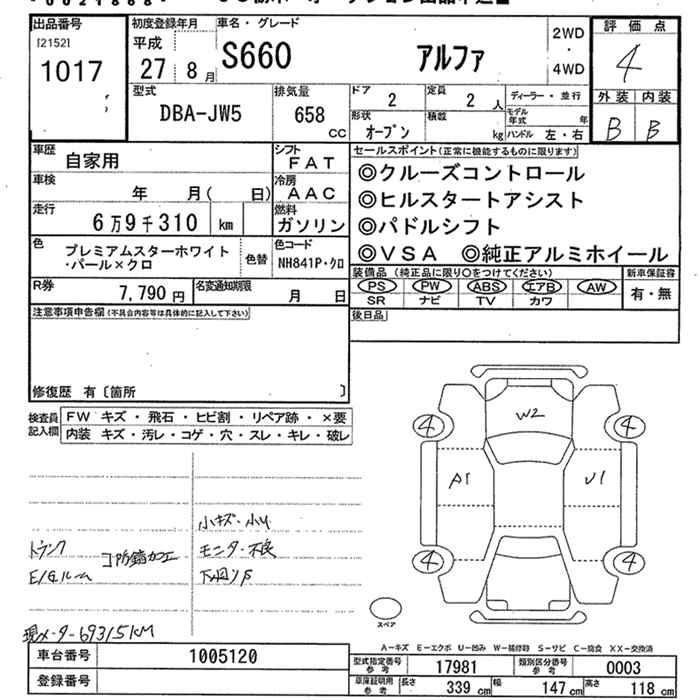 出品番号
[2152]
1017
初度登録年月
平成
27年 8月
車名・グレード
S660 アルファ
2WD
・
4WD
評価点
4
外装 内装
B B
型式
DBA-JW5
排気量
658 cc
ドア
2
定員
2 人
形状
オープン
積載
kg
ディーラー・並行
モデル年式 年
ハンドル 左・右
車歴
自家用
シフト
FAT
車検
年 月( 日)
冷房
AAC
走行
6万9千310 km
燃料
ガソリン
セールスポイント(正常に機能するものに限ります)
◎クルーズコントロール
◎ヒルスタートアシスト
◎パドルシフト
◎VSA ◎純正アルミホイール
色
プレミアムスターホワイト
・パール×クロ
色替
色コード
NH841P・クロ
装備品(純正品に限り○をつけてください)
PS PW ABS エアB AW
SR ナビ TV カワ
新車保証書
有・無
R券
7,790 円
名変通知期限
月 日
後日品
注意事項申告欄(不具合内容等は具体的に記入して下さい)
修復歴 有〔箇所 〕
検査員
記入欄
FW キズ・飛石・ヒビ割・リペア跡・×要
内装 キズ・汚レ・コゲ・穴・スレ・キレ・破レ
W2
4 4
A1 U1
4 4
スペア
小キズ・小U
トランク
E/Gルーム
コ防錆加工
モニター不良
下回リS
現メーター69315KM
A-キズ E-エクボ U-凹み W-補修跡 S-サビ C-腐食 XX-交換済
車台番号 1005120
登録番号
型式指定番号
参考
17981
類別区分番号
参考
0003
車庫証明用
参考
長さ 339 cm 幅 147 cm 高さ 118 cm